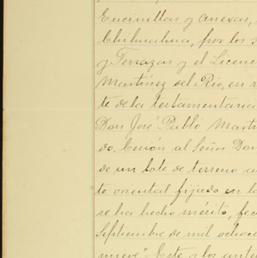 Encinillas y anexas,
Chihuahua, por los s
y Terrazas y el Licenc
Martínez del Río, en r
te de la testamentaria
Don José Pablo Mart
do. Cesión al Señor Don
de un lote de terreno
to oriental fijado en l
se ha hecho mérito, fec
Septiembre de mil ochoc
nueve